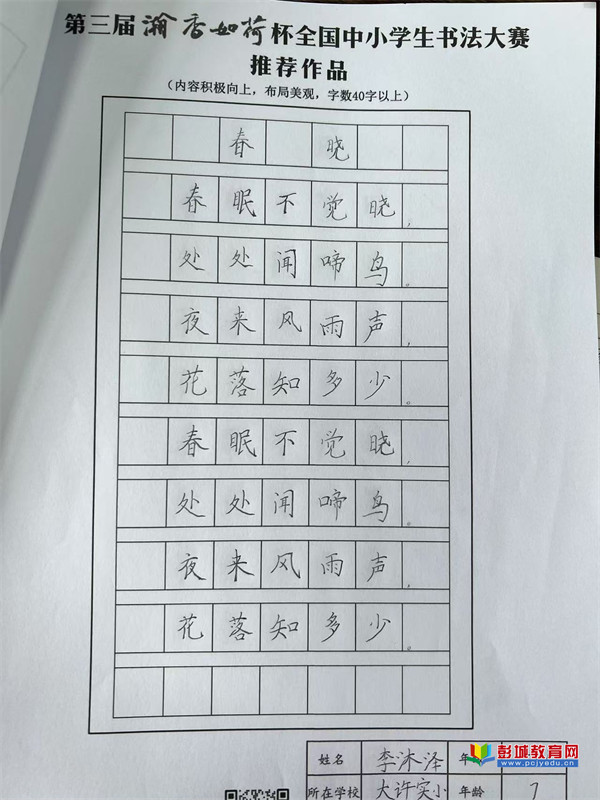 第三届瀚香如荷杯全国中小学生书法大赛
推荐作品
(内容积极向上，布局美观，字数40字以上)
春晓
春眠不觉晓,
处处闻啼鸟。
夜来风雨声,
花落知多少。
春眠不觉晓,
处处闻啼鸟。
夜来风雨声,
花落知多少。
姓名 李沐泽 年
所在学校 大许实小 年龄 7
彭城教育网
www.pcjyedu.cn